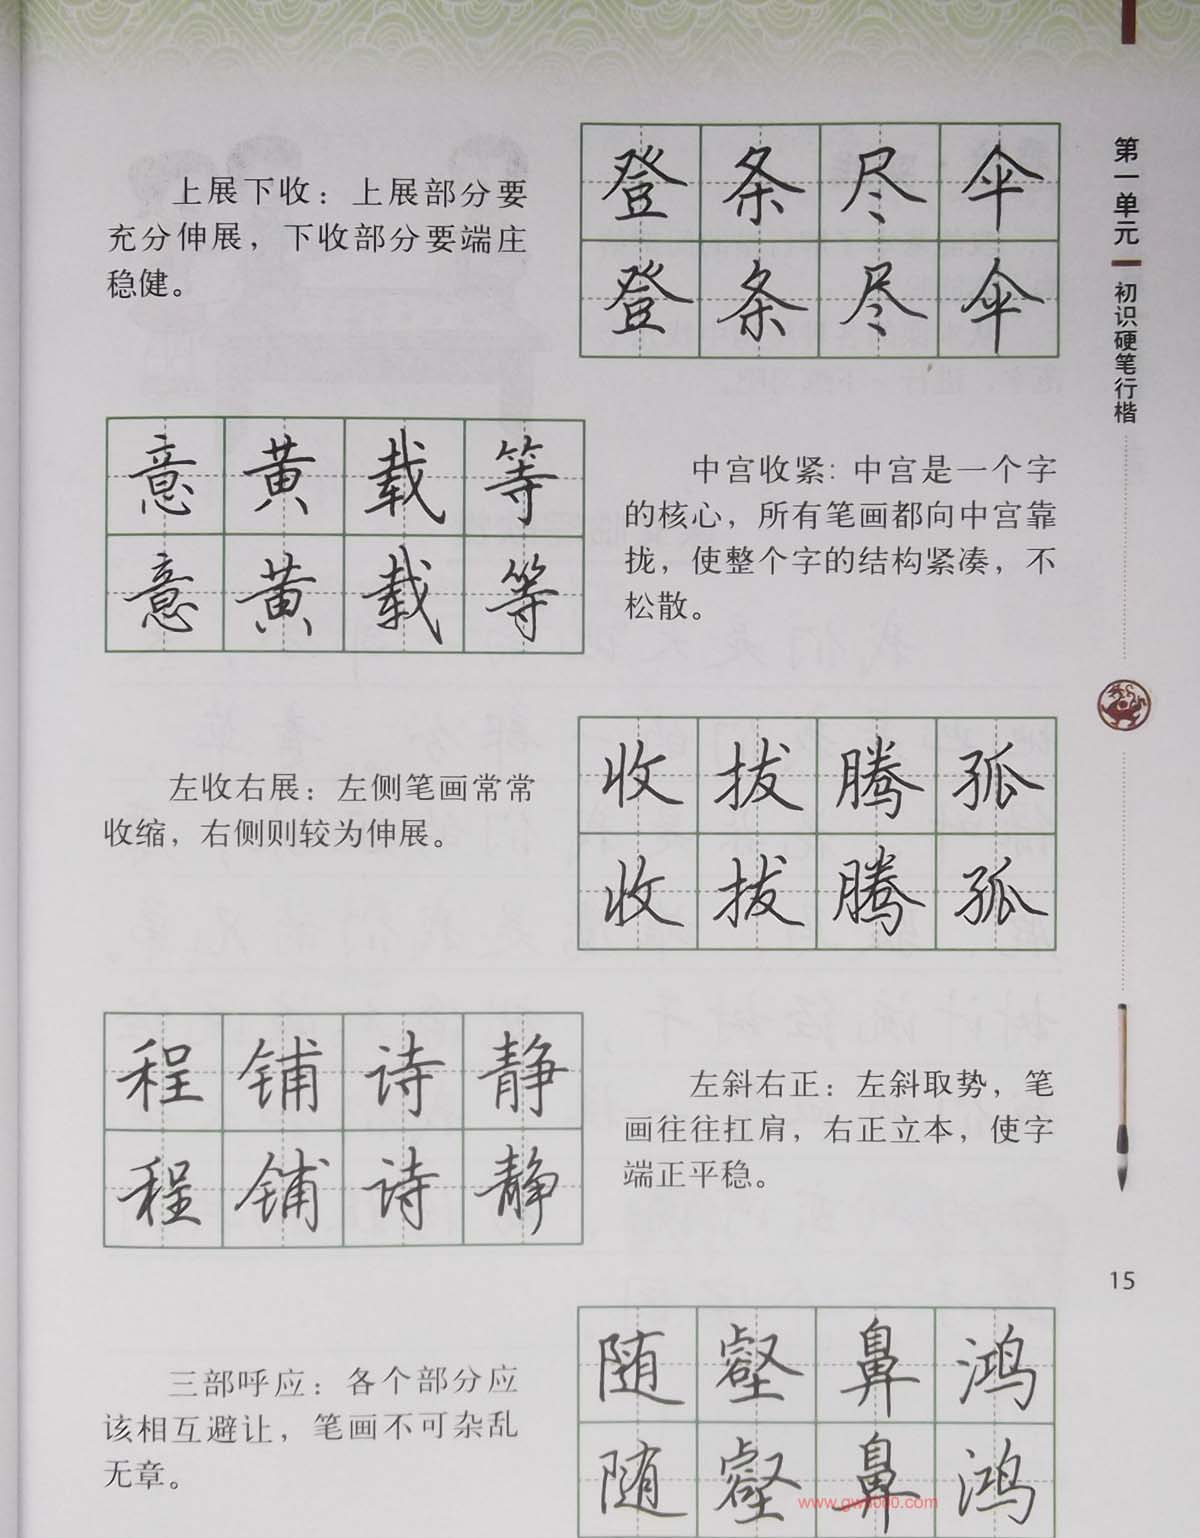 上展下收：上展部分要
充分伸展，下收部分要端庄
稳健。
登条尽伞
登条尽伞
意黄载等
意黄载等
中宫收紧：中宫是一个字
的核心，所有笔画都向中宫靠
拢，使整个字的结构紧凑，不
松散。
左收右展：左侧笔画常常
收缩，右侧则较为伸展。
收拔腾孤
收拔腾孤
程铺诗静
程铺诗静
左斜右正：左斜取势，笔
画往往扛肩，右正立本，使字
端正平稳。
三部呼应：各个部分应
该相互避让，笔画不可杂乱
无章。
随壑鼻鸿
随壑鼻鸿
第一单元
初识硬笔行楷
15